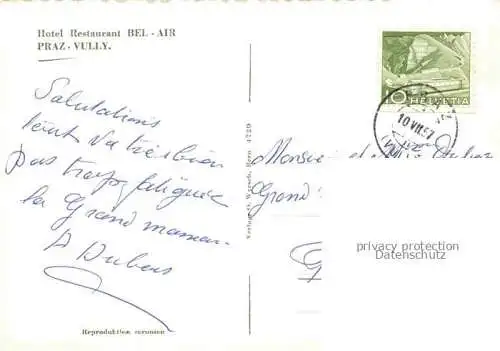 Hotel Restaurant BEL - AIR
PRAZ - VULLY.
Salutations
tout va très bien
Pas trop fatiguée
la Grand maman
D Dubois
Reproduktion verboten
10
HELVETIA
10 VII 57
Monsieur et
Grand
privacy protection
Datenschutz